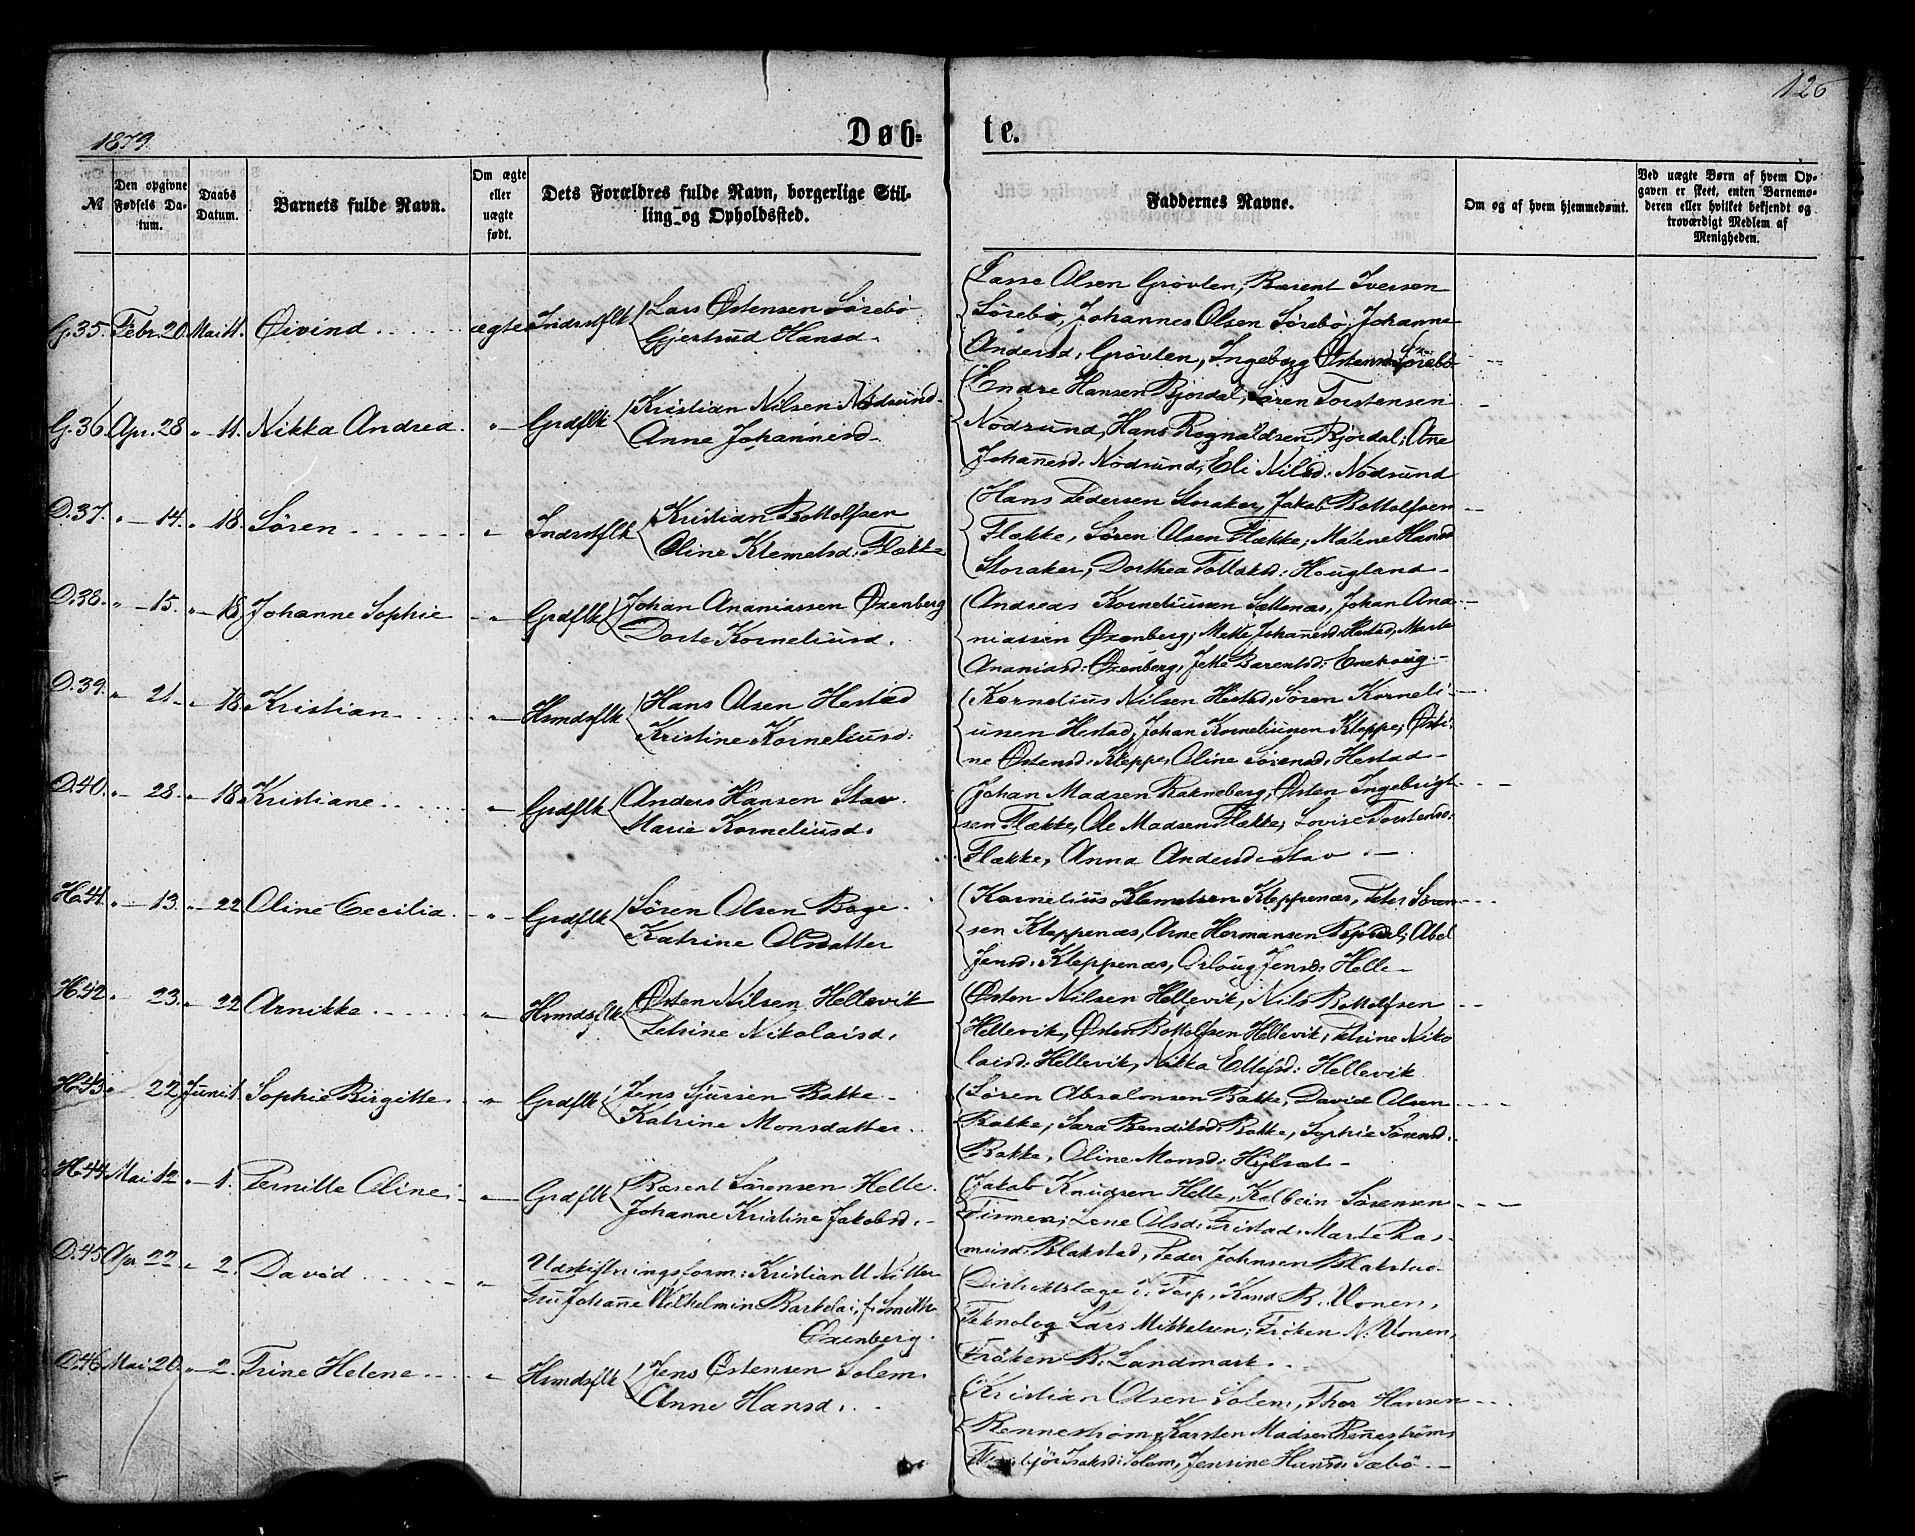 126
1879.
Døb=
te.
№
Den opgivne Fødsels Datum.
Daabs Datum.
Barnets fulde Navn.
Om ægte eller uægte født.
Dets Forældres fulde Navn, borgerlige Stilling og Opholdssted.
Faddernes Navne.
Om og af hvem hjemmedøbt.
Ved uægte Børn af hvem Opgaven er skeet, enten Barnemoderen eller hvilket bekjendt og troværdigt Medlem af Menigheden.
G. 35. Febr. 20 Mai 11. Øivind ægte Indrstflk Lars Østensen Sørebö
Gjertrud Hansd.
Lasse Olsen Grøvlen, Barent Iversen
Sørebö, Johannes Olsen Sørebö, Johanne
Andersd. Grøvlen, Ingeborg Østensd. Sørebö
G. 36. Apr. 28 " 11. Nikka Andrea. " Grdflk Kristian Nilsen Nödsund
Anne Johannesd.
Endre Hansen Bjordal, Sören Torstensen
Nödsund, Hans Rognaldsen Bjordal; Ane
Johanesd. Nödsund, Eli Nilsd: Nödsund
D. 37. " 14. " 18. Sören " Indrstflk Kristian Bottolfsen
Oline Klemetsd: Flække
Hans Pedersen Storaker, Jakob Bottolfsen
Flække, Søren Olsen Flække, Malene Hansd
Storaker, Dorthea Tollaksd: Hougland
D. 38. " 15. " 18 Johanne Sophie " Grdflk Johan Ananiassen Øxenberg
Dorte Korneliusd.
Andreas Korneliussen Sættenæs, Johan Ana-
niassen Øxenberg; Mette Johannesd: Hestad, Marte
Ananiasd: Øxenberg, Jette Barentsd:
D. 39. " 21. " 18 Kristian " Hsmdsflk Hans Olsen Hestad
Kristine Korneliusd:
Kornelius Nilsen Hestad, Sören Korneli-
usen Hestad, Johan Korneliusen Kleppe; Østi-
ne Østensd: Kleppe, Oline Sörensd: Hestad
D. 40. " 28. " 18 Kristiane " Grdflk Anders Hansen Stav
Marie Korneliusd.
Johan Madsen Rakneberg; Østen Ingebrigt-
sen Flække, Ole Madsen Flække; Lovise Torstensd:
Flække, Anna Andersd. Stav
H. 41. " 13. " 22 Oline Cecilia. " Grdflk Søren Olsen
Katrine Olsdatter
Kornelius Klemetsen Kleppenæs, Peter Sören-
sen Kleppenæs, Arne Hermansen Abel
Jensd: Kleppenæs, Oslaug Jensd: Helle
H. 42 " 23. " 22 Arnikke " Hsmdsflk Østen Nilsen Hellevik
Petrine Nikolaisd.
Østen Nilsen Hellevik, Nils Bottolfsen
Hellevik, Østen Bottolfsen Hellevik; Petrine Niko
laisd: Hellevik, Nikka Ellefsd: Hellevik
H. 43. " 22 Juni 1. Sophie Birgitte. " Grdflk Jens Sjursen Bakke
Katrine Monsdatter.
Sören Absalonsen Bakke, David Olsen
Bakke; Sara Bendiksd: Bakke, Sophie Sörensd.
Bakke, Oline Monsd:
H. 44. Mai 12 " 1. Pernille Oline " Grdflk Barent Sørensen Helle
Johanne Kristine Jakobsd.
Jakob Knudsen Helle, Kolbein Sørensen
Lene Olsd: Fristad, Marte Ras-
musd: Blakstad, Peder Johnsen Blakstad
D. 45 Apr 22 " 2. David " Udskiftningsform: Kristian U Nitter
Fru Johanne Wilhelmin f. Smith
Øxenberg.
Distriktslæge Kand B. Vonen,
Teknolog Lars Mikkelsen; Fröken N. Vonen,
Fröken B. Landmark.
D. 46 Mai 20 " 2. Trine Helene " Hsmdsflk Jens Østensen Solem
Anne Hansd.
Kristian Olsen Solem, Thor Hansen
Rennestrøm, Karsten Madsen Renestrøm,
Isaksd: Solem, Jensine Hansd: Sæbö.